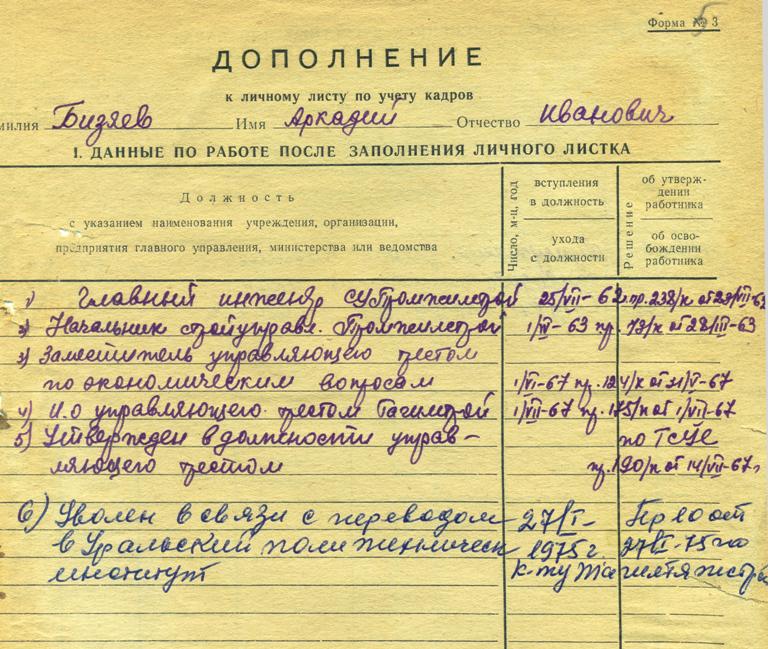 Форма № 3
5
ДОПОЛНЕНИЕ
к личному листу по учету кадров
милия Бизяев Имя Аркадий Отчество Иванович
1. ДАННЫЕ ПО РАБОТЕ ПОСЛЕ ЗАПОЛНЕНИЯ ЛИЧНОГО ЛИСТКА
Должность
с указанием наименования учреждения, организации,
предприятия главного управления, министерства или ведомства
Число, м-ц, год
вступления
в должность
ухода
с должности
Решение
об утверж-
дении
работника
об осво-
бождении
работника
1) Главный инженер СУПромжилстрой 25/VII-62 пр.238/к от 23/VII-62
2) Начальник стройуправл. Промжилстрой 1/IV-63 пр. 73/к от 28/III-63
3) Заместитель управляющего трестом
по экономическим вопросам 1/VI-67 пр. 124/к от 31/V-67
4) И.о управляющего трестом Тагилстрой 1/VII-67 пр. 175/к от 1/VII-67
5) Утвержден в должности управ- по ТСЦЕ
ляющего трестом пр. 190/к от 14/VII-67г
6) Уволен в связи с переводом 27/I- Пр 10 от
в Уральский политехническ 1975г. 27/I-75 по
институт к-ту